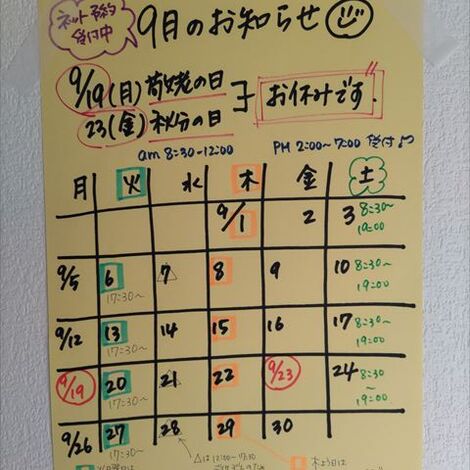 ネット予約
受付中
9月のお知らせ
9/19(月)敬老の日
23(金)秋分の日
お休みです。
am 8:30-12:00
PM 2:00~7:00 受付
月 火 水 木 金 土
9/1 2 3 8:30~
19:00
9/5 6 7 8 9 10 8:30~
17:30~ 19:00
9/12 13 14 15 16 17 8:30~
17:30~ 19:00
9/19 20 21 22 9/23 24 8:30
~
17:30~ 19:00
9/26 27 28 29 30
17:30~
△は12:00~17:30
木よう日は